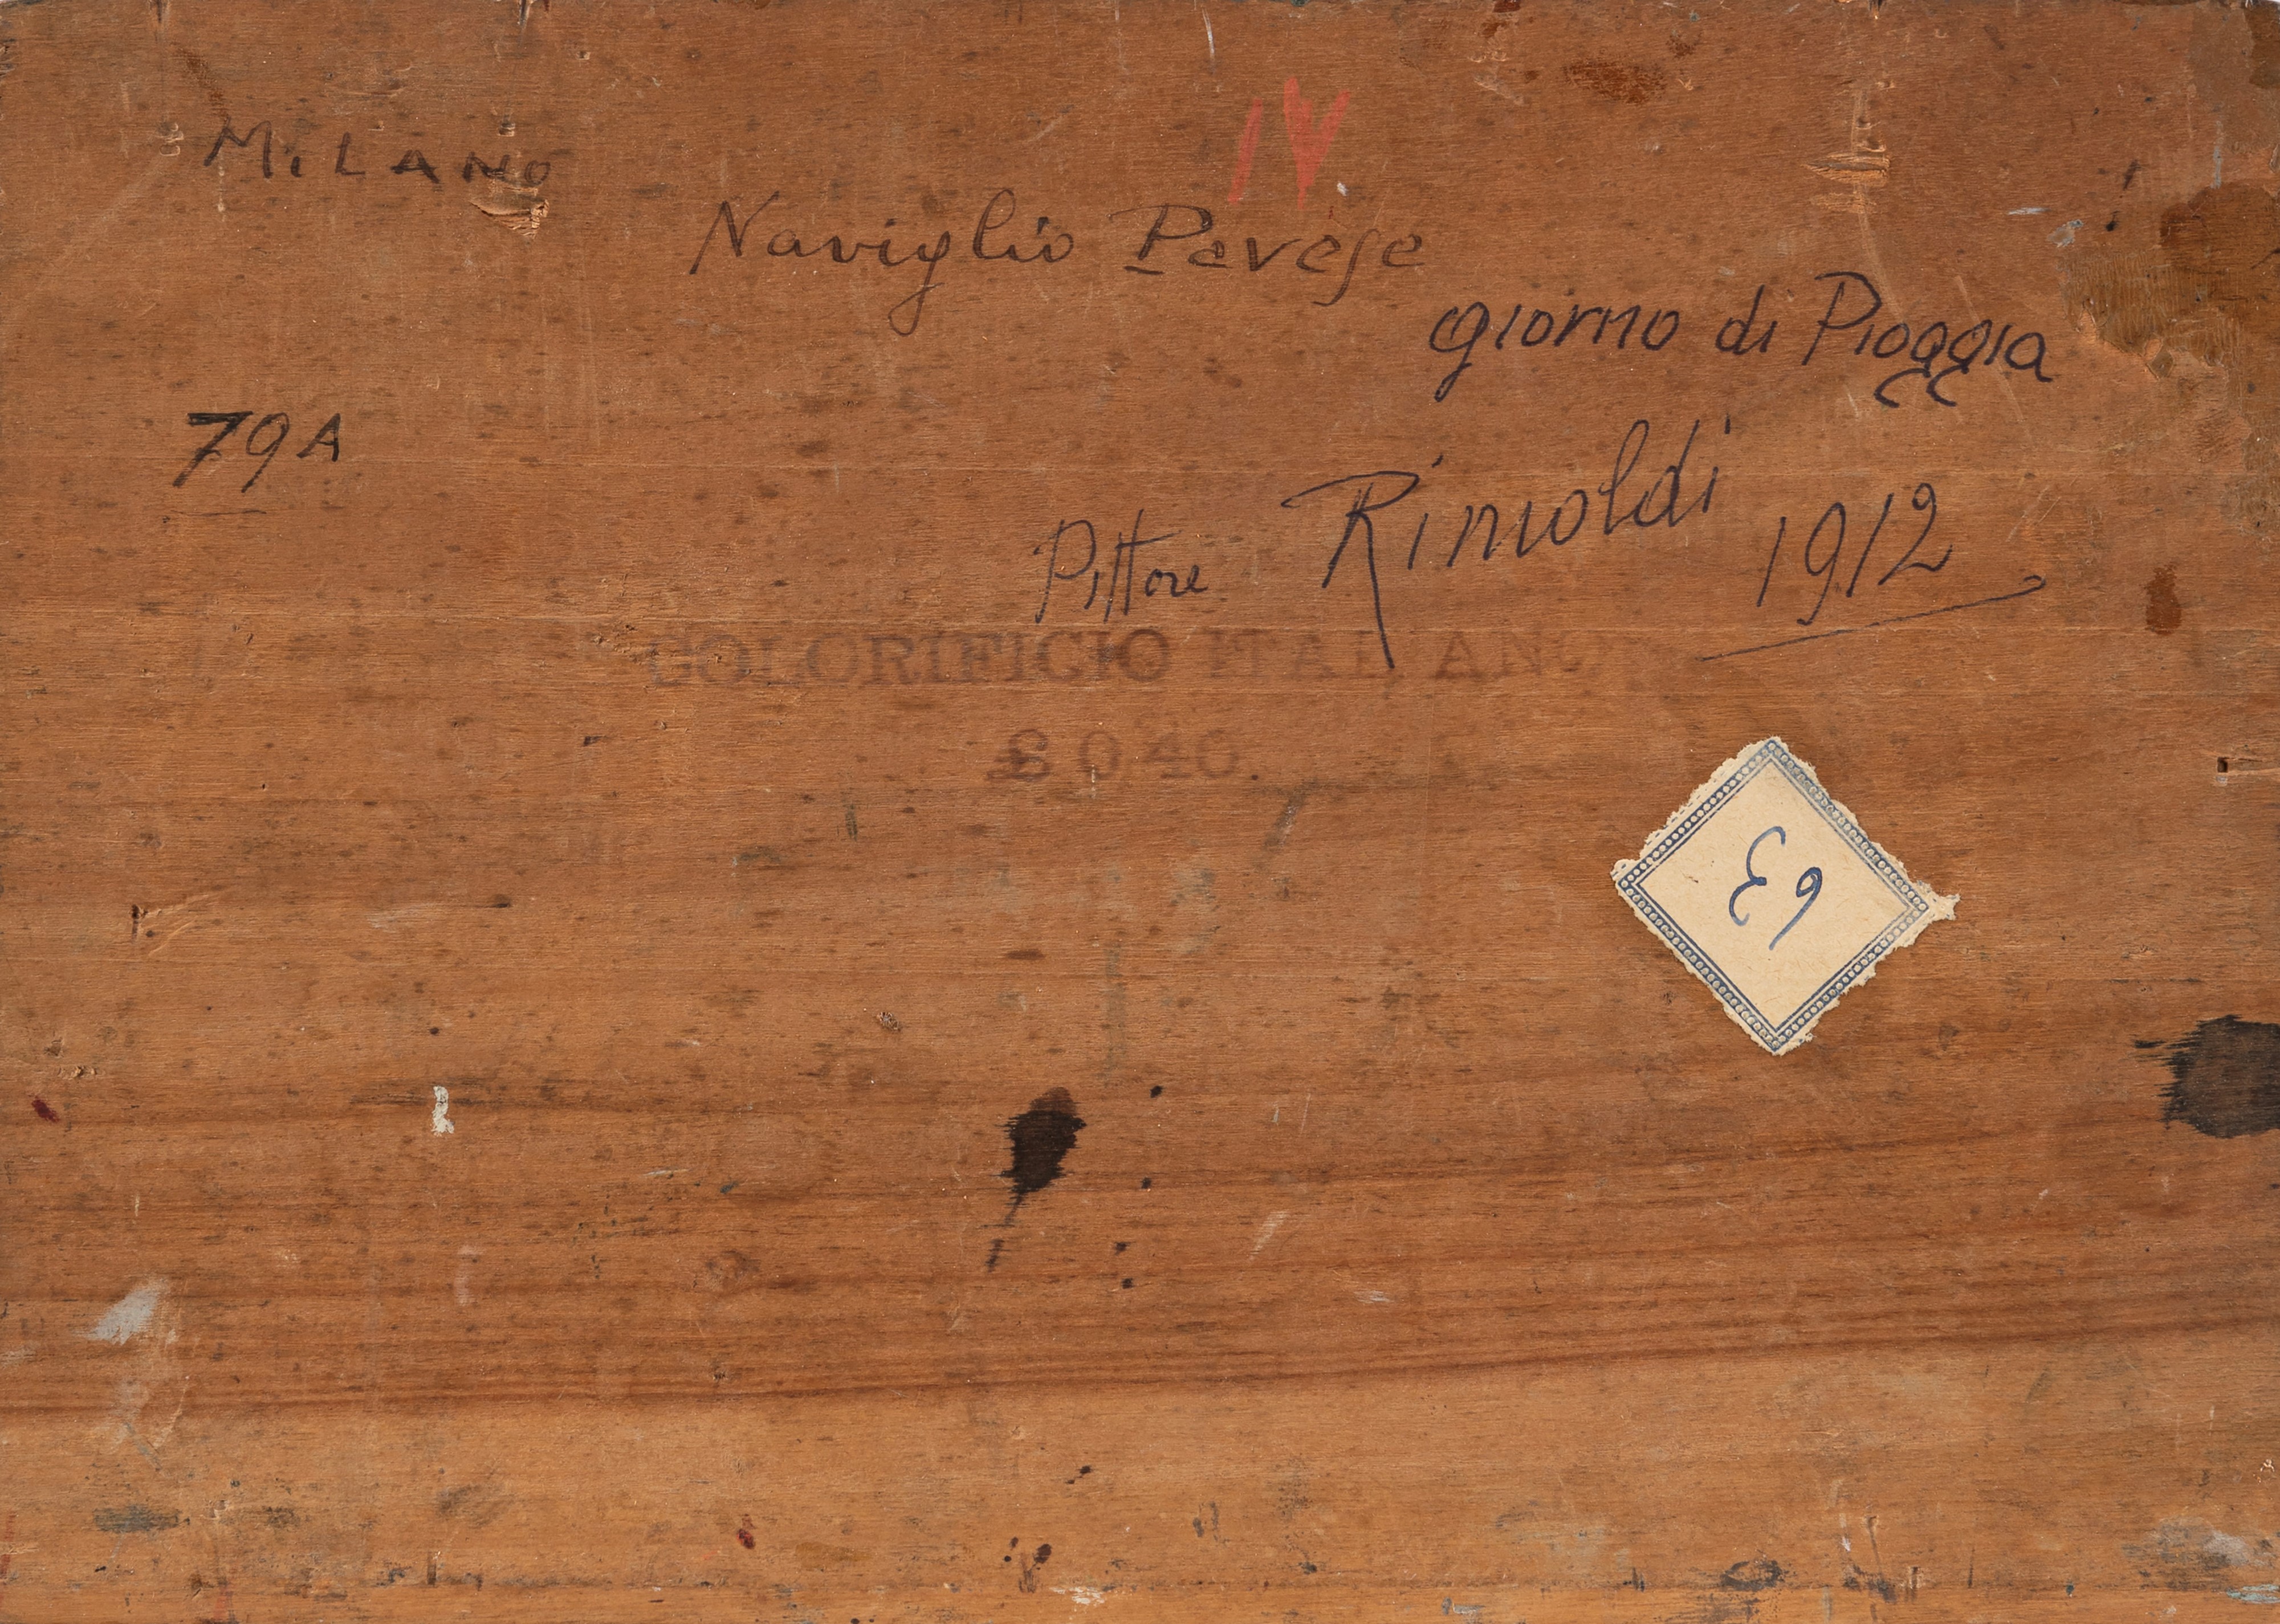 IV
MiLANO
Naviglio Pavese
giorno di Pioggia
79A
Pittore Rimoldi 1912
COLORIFICIO ITALIANO
£ 0.40.